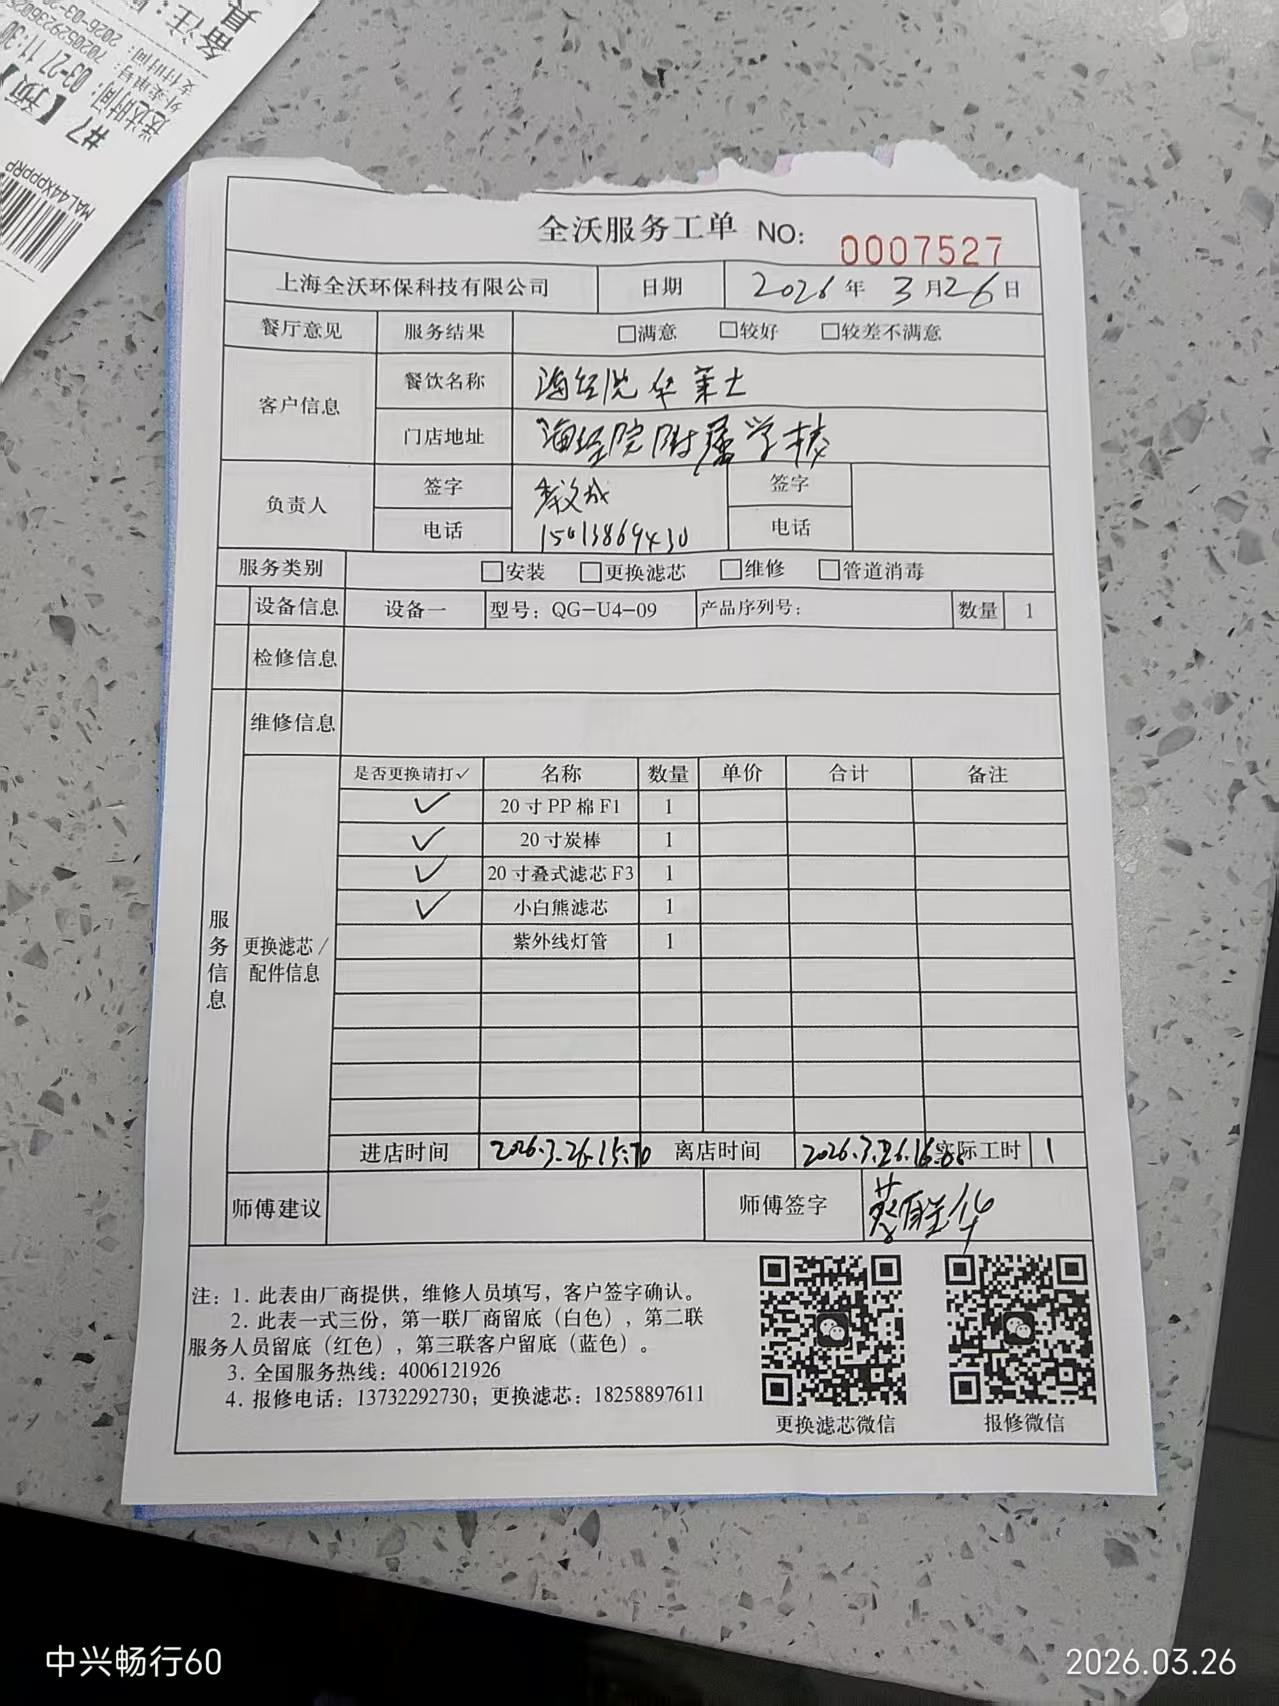 备注:
具
#7【预
送达时间: 03-27 11:30
MAL44XPPPRP
全沃服务工单 NO: 0007527
上海全沃环保科技有限公司 日期 2026年 3月26日
餐厅意见 服务结果 □满意 □较好 □较差不满意
客户信息 餐饮名称 海经院华莱士
门店地址 海经院附属学校
负责人 签字 签字
电话 电话
服务类别 □安装 □更换滤芯 □维修 □管道消毒
设备信息 设备一 型号: QG-U4-09 产品序列号: 数量 1
检修信息
维修信息
服务信息
更换滤芯/配件信息
是否更换请打✓ 名称 数量 单价 合计 备注
✓ 20寸PP棉F1 1
✓ 20寸炭棒 1
✓ 20寸叠式滤芯F3 1
✓ 小白熊滤芯 1
紫外线灯管 1
进店时间 2026.3.26.15:10 离店时间 2026.3.26.16: 实际工时 1
师傅建议 师傅签字
注: 1. 此表由厂商提供，维修人员填写，客户签字确认。
2. 此表一式三份，第一联厂商留底（白色），第二联
服务人员留底（红色），第三联客户留底（蓝色）。
3. 全国服务热线: 4006121926
4. 报修电话: 13732292730; 更换滤芯: 18258897611
更换滤芯微信 报修微信
中兴畅行60 2026.03.26